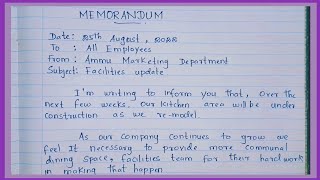 MEMORANDUM
Date: 25th August, 2022
To : All Employees
From : Ammu Marketing Department
Subject: Facilities update
I'm writing to inform you that, over the
next few weeks. Our kitchen area will be under
construction as we re-model.
As our company continues to grow we
feel It necessary to provide more communal
dining space, facilities team for their hardwork
in making that happen